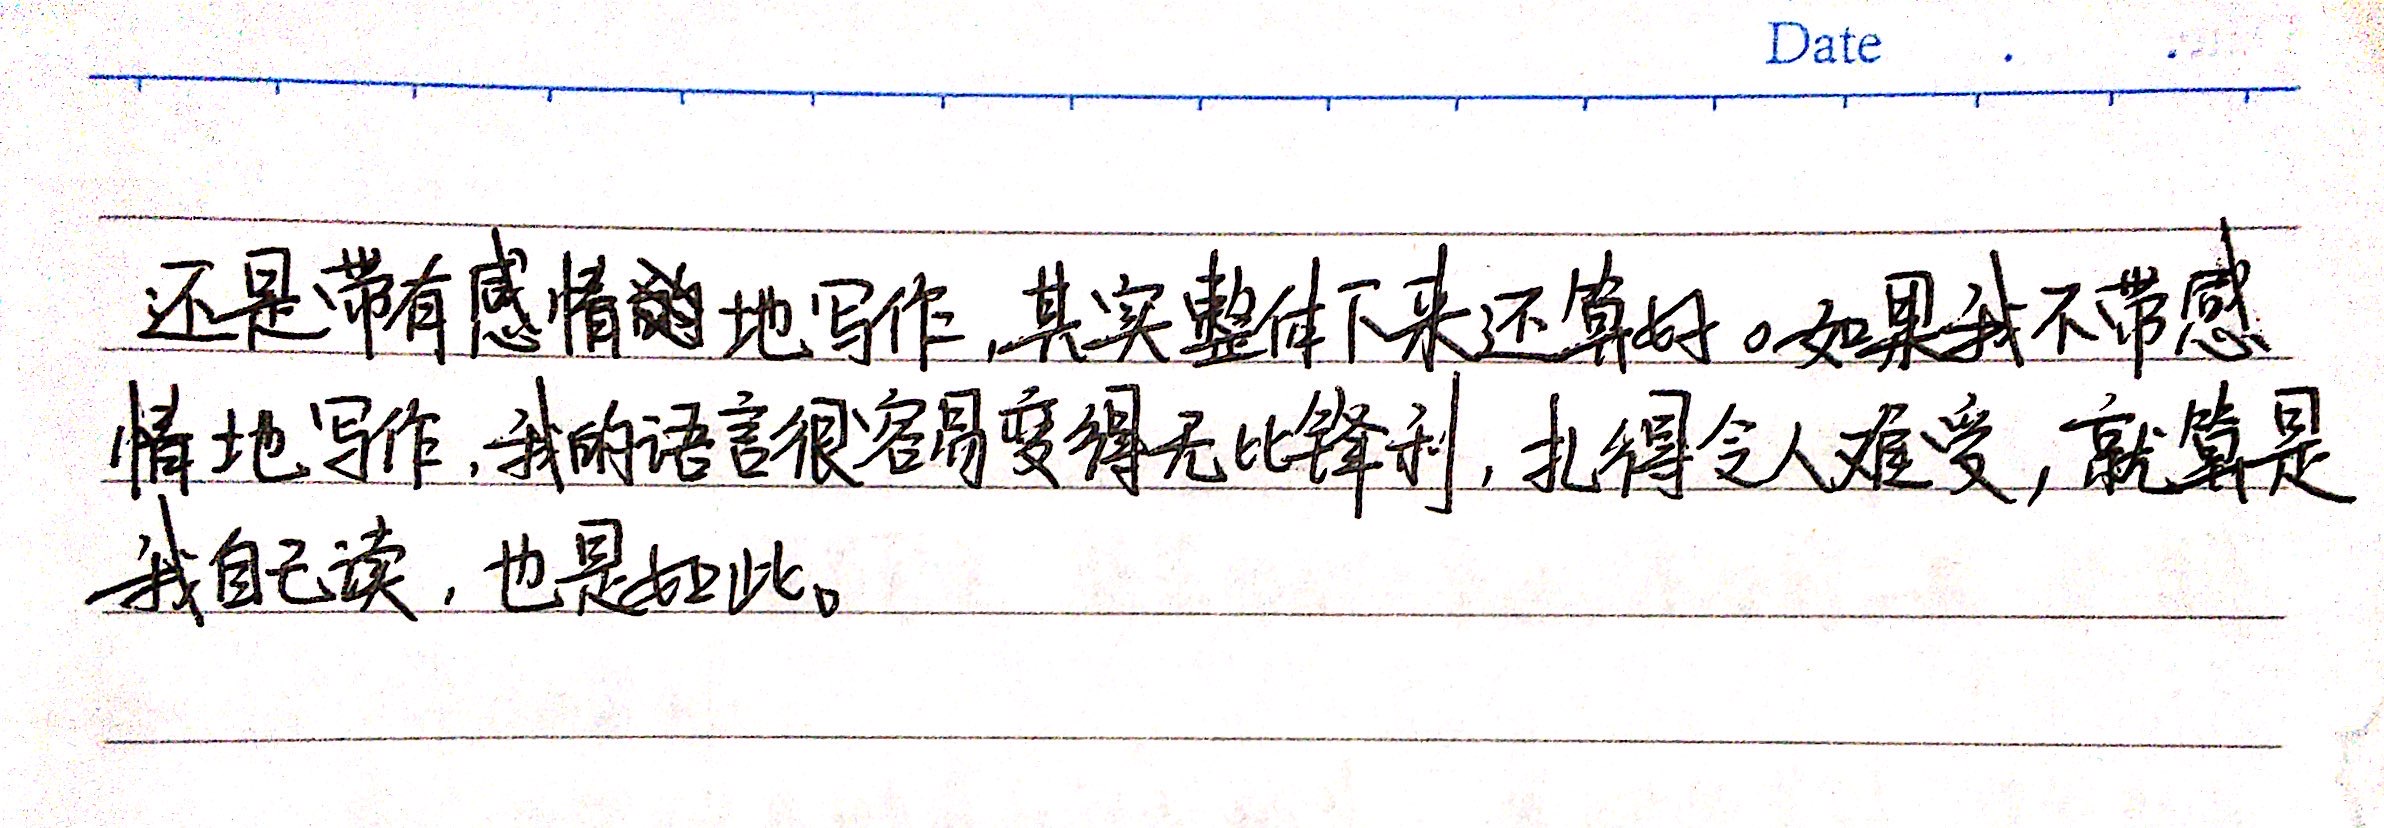 Date . .
还是带有感情地写作，其实整体下来还算好。如果我不带感
情地写作，我的语言很容易变得无比锋利，扎得令人难受，就算是
我自己读，也是如此。